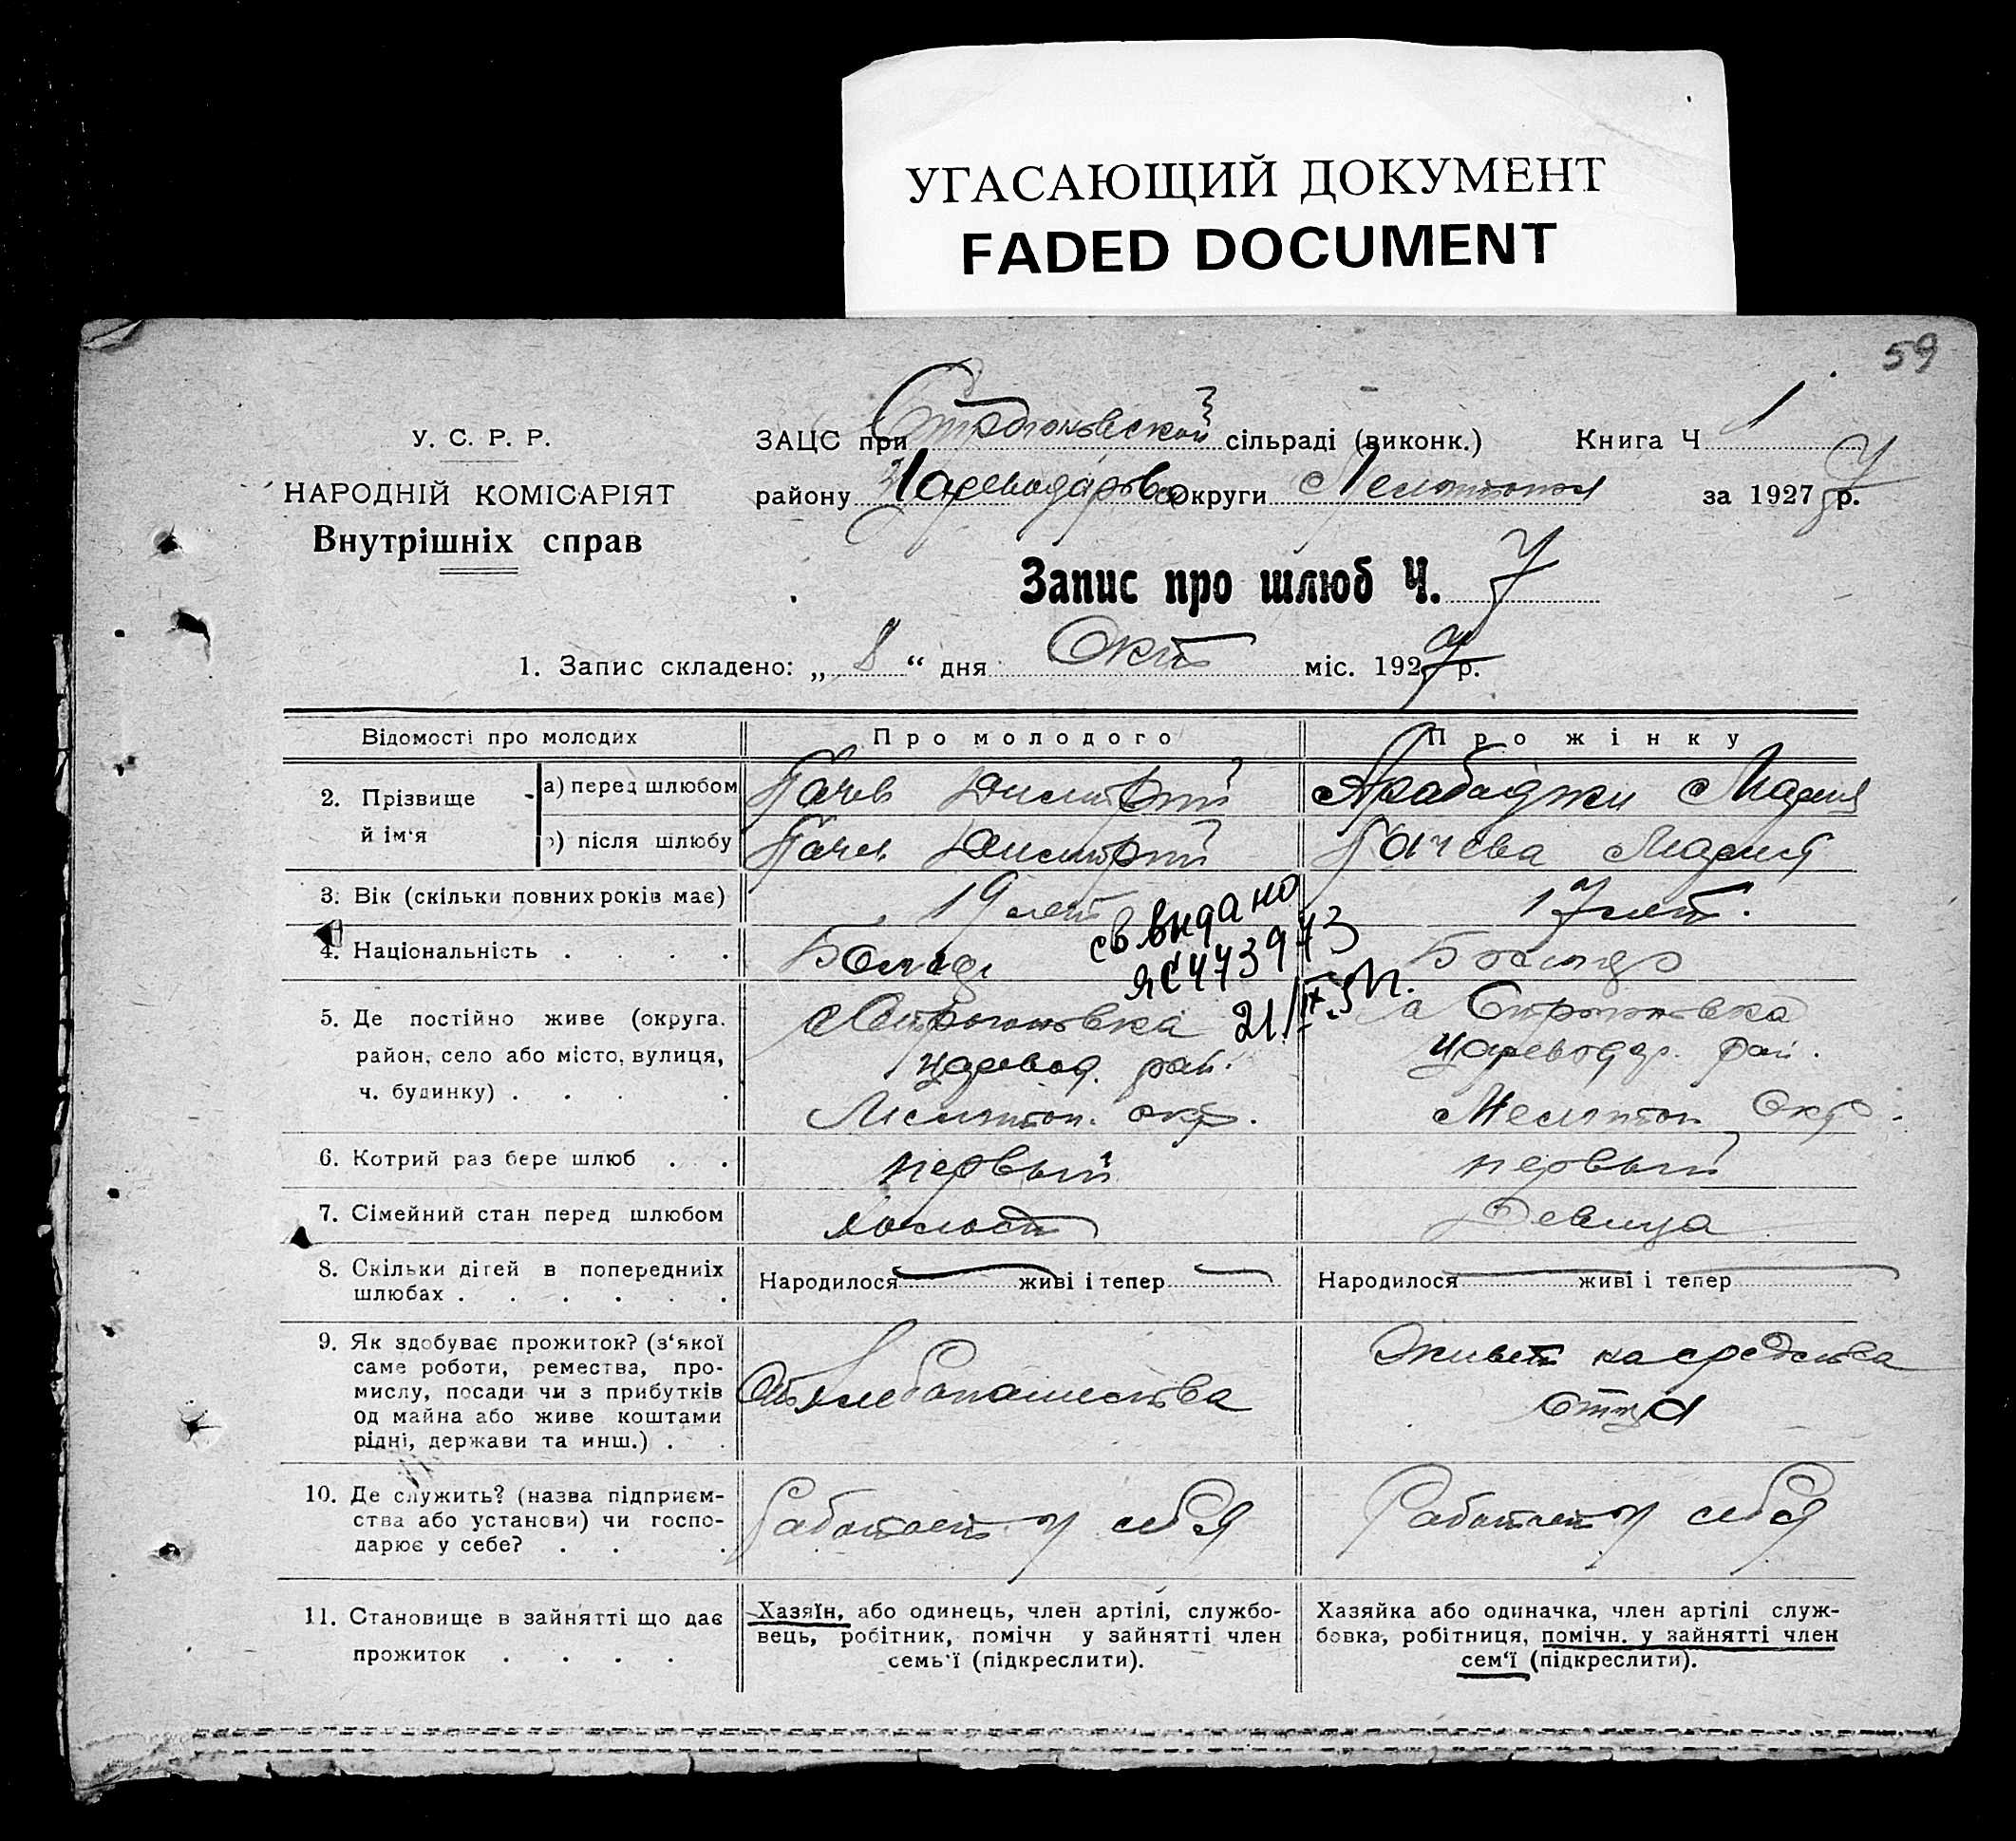 УГАСАЮЩИЙ ДОКУМЕНТ
FADED DOCUMENT
59
У. С. Р. Р.
НАРОДНІЙ КОМІСАРІЯТ
Внутрішніх справ
ЗАЦС при Строгоновской сільраді (виконк.) Книга Ч 1
району Цареводаров округи Мелитопол за 1927 р.
Запис про шлюб Ч. 7
1. Запис складено: „ 8 “ дня Окт міс. 1927 р.
Відомості про молодих Про молодого Про жінку
2. Прізвище й ім'я
а) перед шлюбом Гачев Димитрий Арабаджи Мария
в) після шлюбу Гачев Димитрий Гачева Мария
3. Вік (скільки повних років має) 19 лет 17 лет.
4. Національність . . . . Болгар Болгар
св выдано
ЯС 473973
21/IX.51г.
5. Де постійно живе (округа. с Строгоновка с Строгоновка
район, село або місто, вулиця, Царевод. рай. Цареводар. рай.
ч. будинку) . . . . Мелитоп. окр. Мелитоп Окр.
6. Котрий раз бере шлюб . . первый первый
7. Сімейний стан перед шлюбом холост Девица
8. Скільки дітей в попередниіх Народилося живі і тепер Народилося живі і тепер
шлюбах . . . . . .
9. Як здобуває прожиток? (з'якої Живет на средства
саме роботи, ремества, про- отца
мислу, посади чи з прибутків От хлебопашества
од майна або живе коштами
рідні, держави та инш.) . .
10. Де служить? (назва підприєм- Работает у себя Работает у себя
ства або установи) чи госпо-
дарює у себе? . . .
11. Становище в зайнятті що дає
прожиток . . . .
Хазяїн, або одинець, член артілі, службо-
вець, робітник, помічн у зайнятті член
семь'ї (підкреслити).
Хазяйка або одиначка, член артілі служ-
бовка, робітниця, помічн. у зайнятті член
сем'ї (підкреслити).